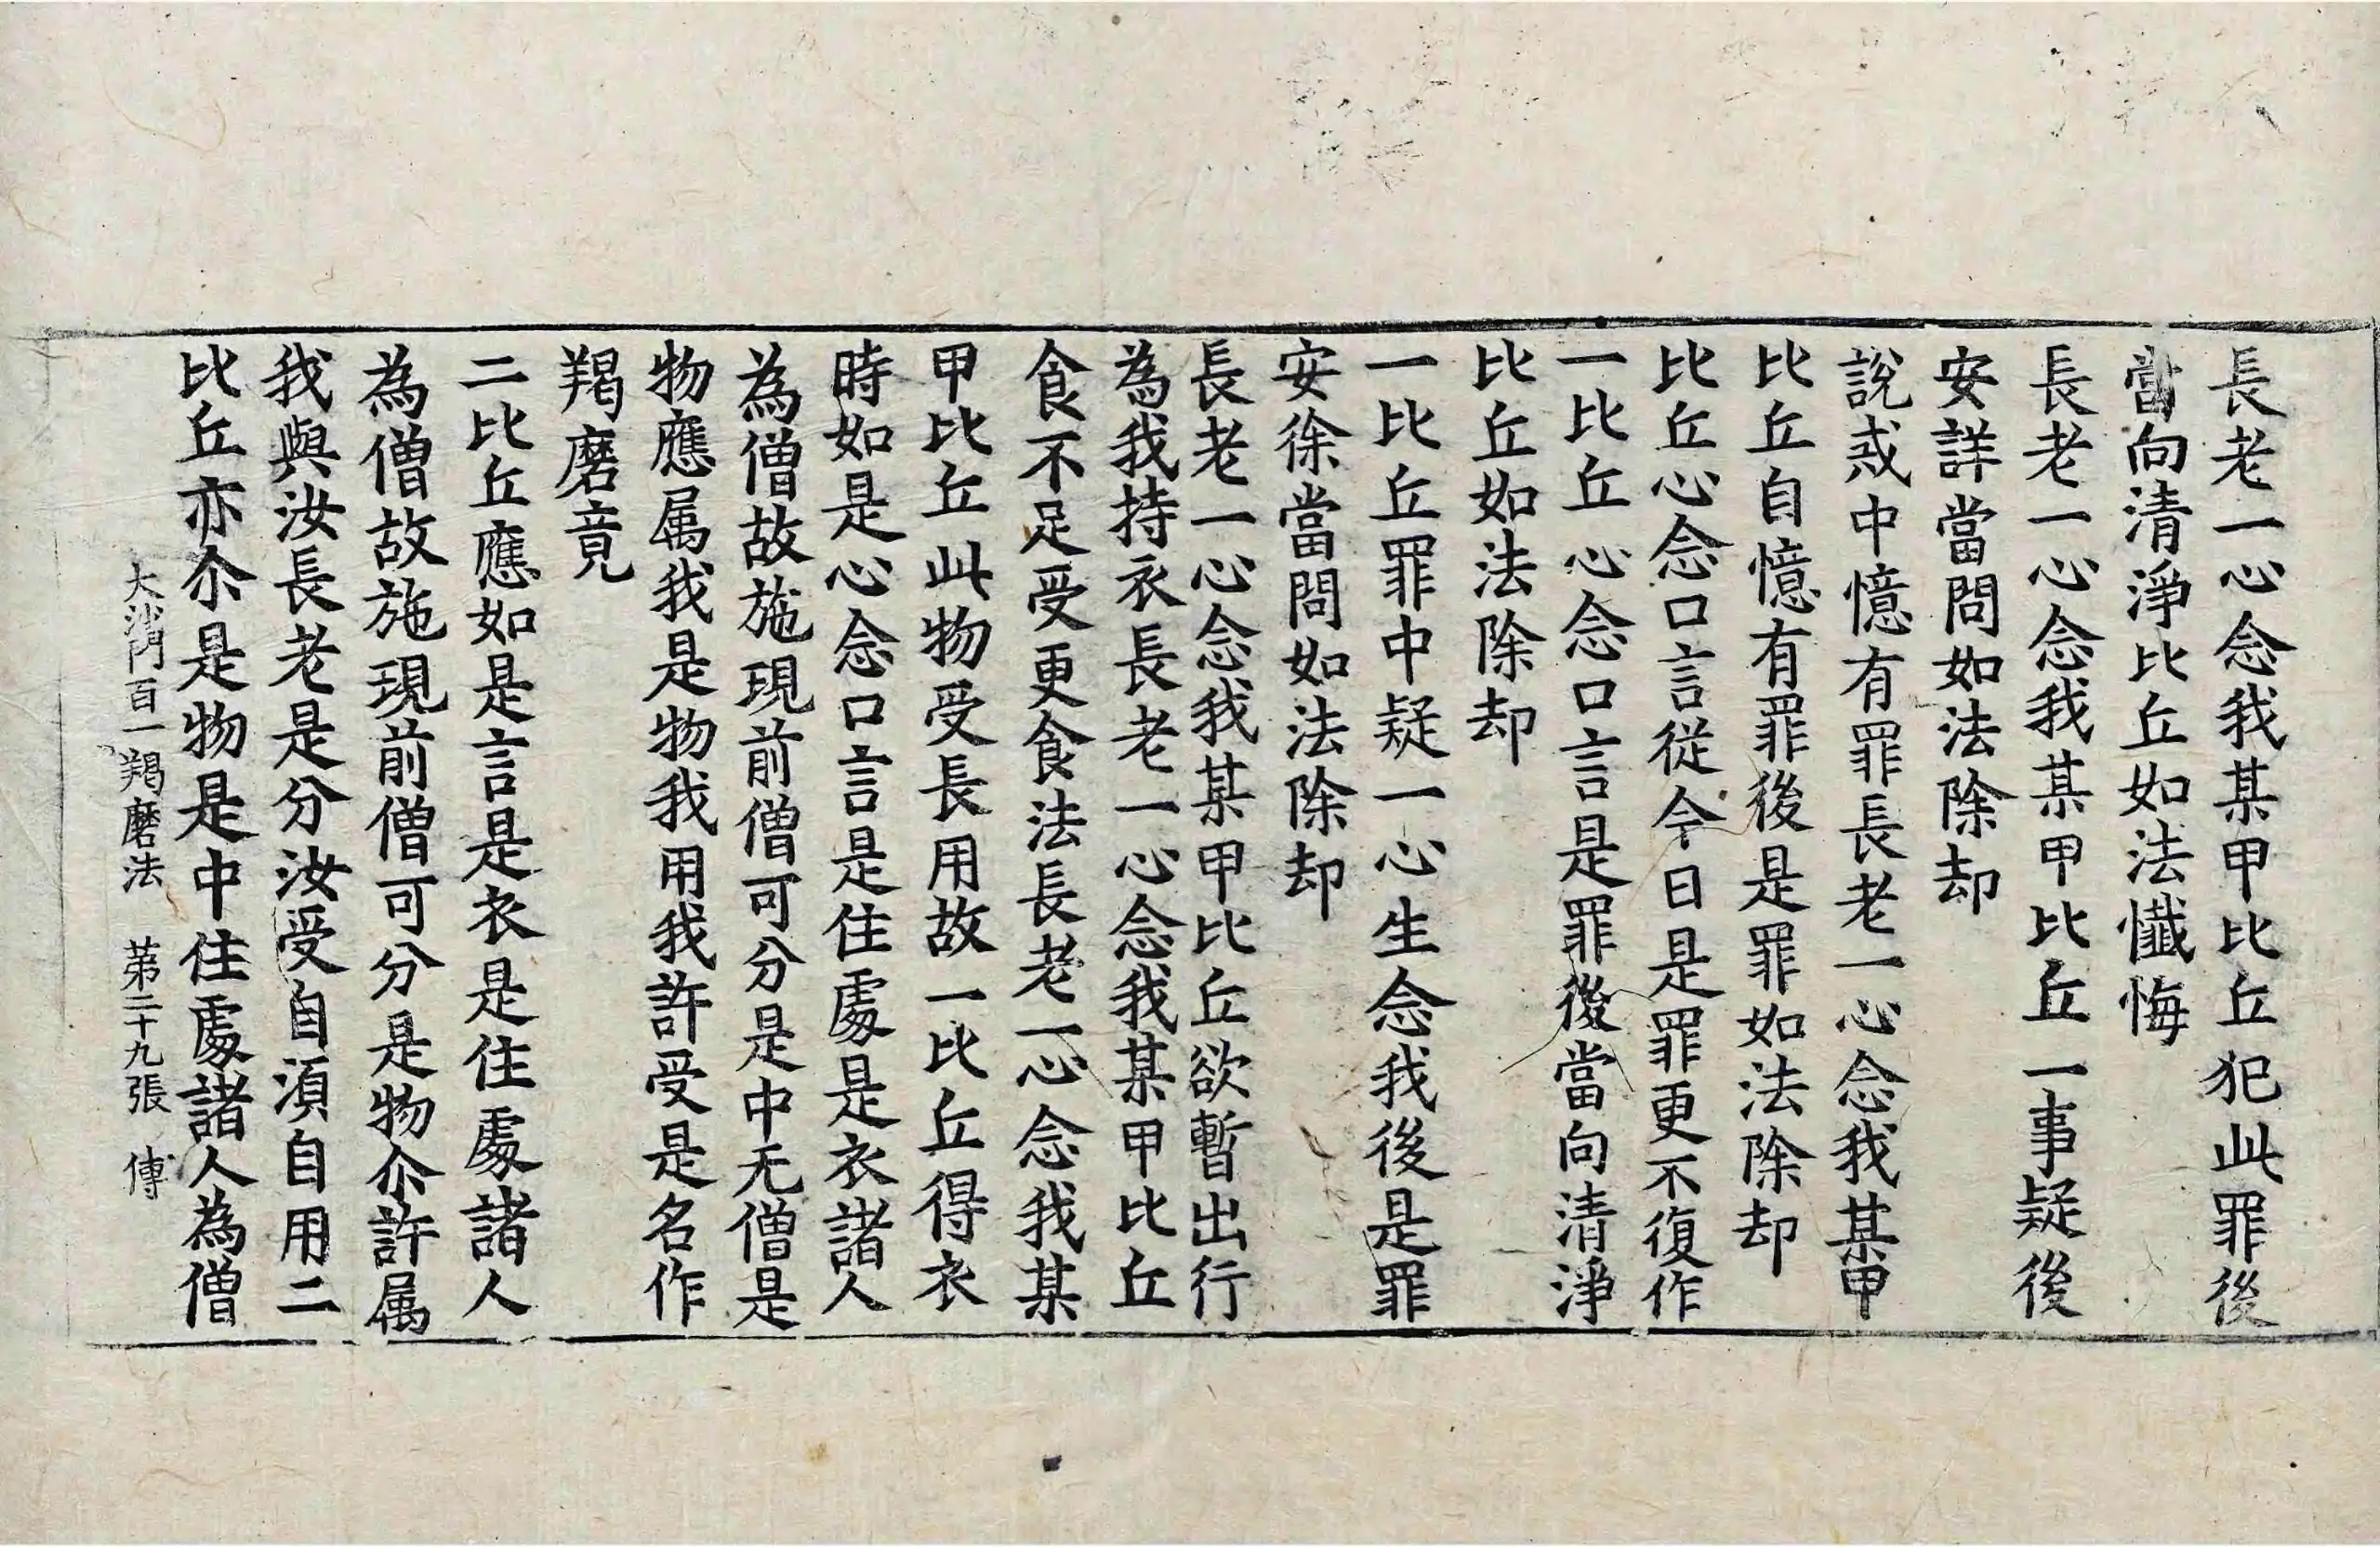 長老一心念我某甲比丘犯此罪後
當向清淨比丘如法懺悔
長老一心念我某甲比丘一事疑後
安詳當問如法除却
說戒中憶有罪長老一心念我某甲
比丘自憶有罪後是罪如法除却
比丘心念口言從今日是罪更不復作
一比丘心念口言是罪後當向清淨
比丘如法除却
一比丘罪中疑一心生念我後是罪
安徐當問如法除却
長老一心念我某甲比丘欲暫出行
為我持衣長老一心念我某甲比丘
食不足受更食法長老一心念我某
甲比丘此物受長用故一比丘得衣
時如是心念口言是住處是衣諸人
為僧故施現前僧可分是中无僧是
物應属我是物我用我許受是名作
羯磨竟
二比丘應如是言是衣是住處諸人
為僧故施現前僧可分是物尒許属
我與汝長老是分汝受自湏自用二
比丘亦尒是物是中住處諸人為僧
大沙門百一羯磨法 苐二十九張 傅